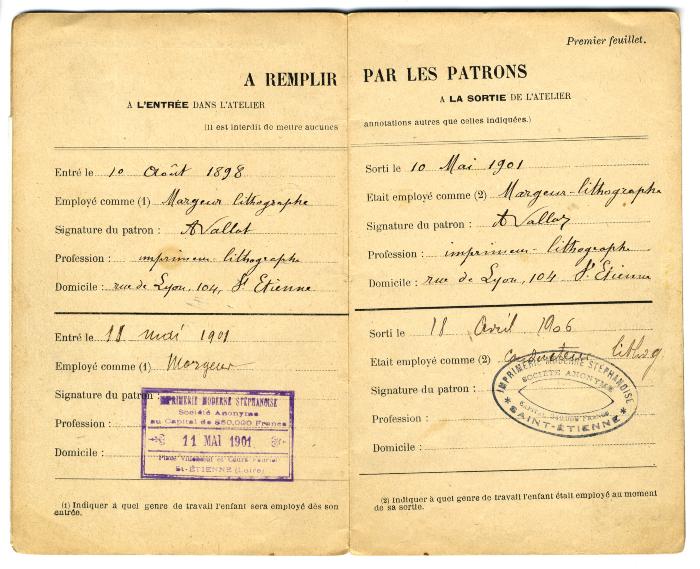 Premier feuillet.
A REMPLIR PAR LES PATRONS
A L'ENTRÉE DANS L'ATELIER
A LA SORTIE DE L'ATELIER
(Il est interdit de mettre aucunes annotations autres que celles indiquées.)
Entré le 10 Août 1898
Employé comme (1) Margeur lithographe
Signature du patron : AVallot
Profession : imprimeur-lithographe
Domicile : rue de Lyon, 104, St Etienne
Entré le 11 mai 1901
Employé comme (1) Margeur
Signature du patron :
Profession :
Domicile :
IMPRIMERIE MODERNE STÉPHANOISE
Société Anonyme
au Capital de 850,000 Francs
11 MAI 1901
Place Villebœuf et Cours Fauriel
ST-ÉTIENNE (Loire)
(1) Indiquer à quel genre de travail l'enfant sera employé dès son
entrée.
Sorti le 10 Mai 1901
Etait employé comme (2) Margeur-lithographe
Signature du patron : AVallot
Profession : imprimeur-lithographe
Domicile : rue de Lyon, 104 St Etienne
Sorti le 18 Avril 1906
Etait employé comme (2) conducteur lithog
Signature du patron :
Profession :
Domicile :
IMPRIMERIE MODERNE STÉPHANOISE
SOCIÉTÉ ANONYME
FRANCS
SAINT-ÉTIENNE
(2) Indiquer à quel genre de travail l'enfant était employé au moment
de sa sortie.